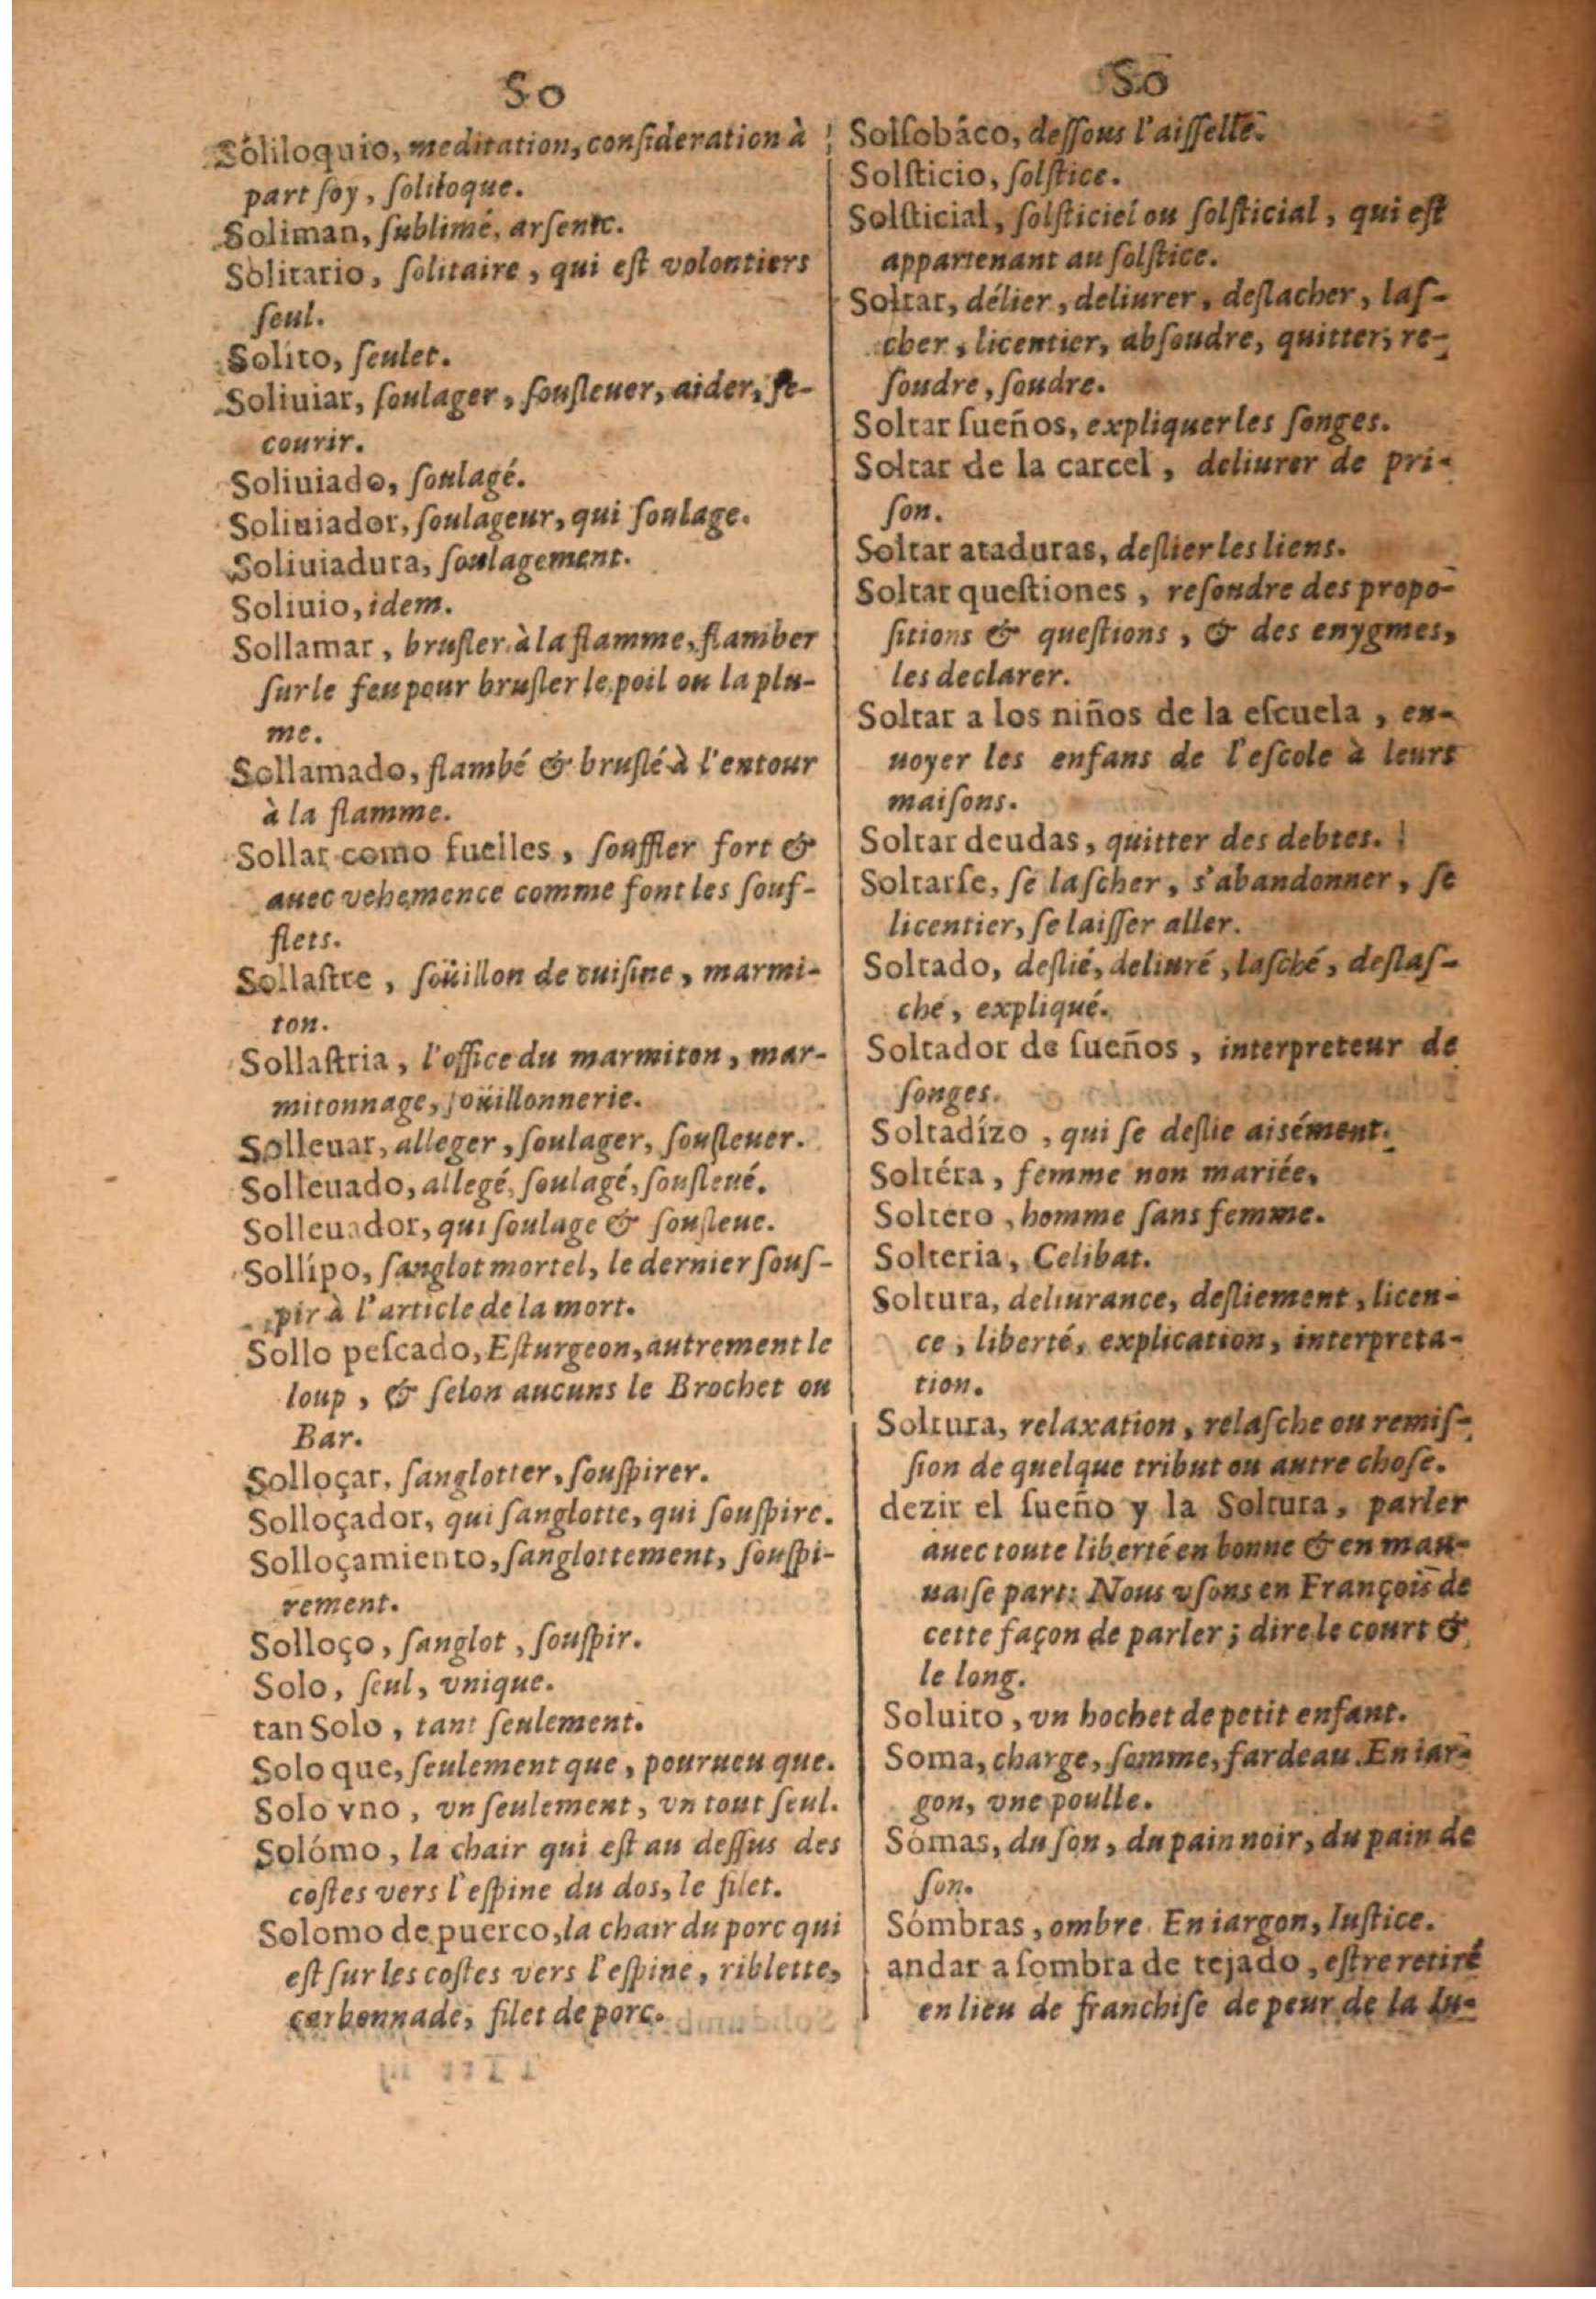 So
Soliloquio, meditation, conſideration à
part ſoy, ſoliloque.
Soliman, ſublimé, arſenic.
Solitario, ſolitaire, qui eſt volontiers
ſeul.
Solito, ſeulet.
Soliuiar, ſoulager, ſouſleuer, aider, ſe-
courir.
Soliuiado, ſoulagé.
Soliuiador, ſoulageur, qui ſoulage.
Soliuiadura, ſoulagement.
Soliuio, idem.
Sollamar, bruſler à la flamme, flamber
ſur le feu pour bruſler le poil ou la plu-
me.
Sollamado, flambé & bruſlé à l'entour
à la flamme.
Sollar como fuelles, ſouffler fort &
auec vehemence comme font les ſouf-
flets.
Sollaſtre, ſoüillon de cuiſine, marmi-
ton.
Sollaſtria, l'office du marmiton, mar-
mitonnage, ſoüillonnerie.
Solleuar, alleger, ſoulager, ſouſleuer.
Solleuado, allegé, ſoulagé, ſouſleué.
Solleuador, qui ſoulage & ſouſleue.
Sollípo, ſanglot mortel, le dernier ſouſ-
pir à l'article de la mort.
Sollo peſcado, Eſturgeon, autrement le
loup, & ſelon aucuns le Brochet ou
Bar.
Solloçar, ſanglotter, ſouſpirer.
Solloçador, qui ſanglotte, qui ſouſpire.
Solloçamiento, ſanglottement, ſouſpi-
rement.
Solloço, ſanglot, ſouſpir.
Solo, ſeul, vnique.
tan Solo, tant ſeulement.
Solo que, ſeulement que, pourueu que.
Solo vno, vn ſeulement, vn tout ſeul.
Solómo, la chair qui eſt au deſſus des
coſtes vers l'eſpine du dos, le filet.
Solomo de puerco, la chair du porc qui
eſt ſur les coſtes vers l'eſpine, riblette,
carbonnade, filet de porc.
So
Solſobáco, deſſous l'aiſſelle.
Solſticio, ſolſtice.
Solſticial, ſolſticiel ou ſolſticial, qui eſt
appartenant au ſolſtice.
Soltar, délier, deliurer, deſlacher, laſ-
cher, licentier, abſoudre, quitter, re-
ſoudre, ſoudre.
Soltar ſueños, expliquer les ſonges.
Soltar de la carcel, deliurer de pri-
ſon.
Soltar ataduras, deſlier les liens.
Soltar queſtiones, reſoudre des propo-
ſitions & queſtions, & des enygmes,
les declarer.
Soltar a los niños de la eſcuela, en-
uoyer les enfans de l'eſcole à leurs
maiſons.
Soltar deudas, quitter des debtes.
Soltarſe, ſe laſcher, s'abandonner, ſe
licentier, ſe laiſſer aller.
Soltado, deſlié, deliuré, laſché, deſlaſ-
ché, expliqué.
Soltador de ſueños, interpreteur de
ſonges.
Soltadízo, qui ſe deſlie aisément.
Soltéra, femme non mariée.
Soltero, homme ſans femme.
Solteria, Celibat.
Soltura, deliurance, deſliement, licen-
ce, liberté, explication, interpreta-
tion.
Soltura, relaxation, relaſche ou remiſ-
ſion de quelque tribut ou autre choſe.
dezir el ſueño y la Soltura, parler
auec toute liberté en bonne & en mau-
uaiſe part: Nous vſons en François de
cette façon de parler; dire le court &
le long.
Soluito, vn hochet de petit enfant.
Soma, charge, ſomme, fardeau. En iar-
gon, vne poulle.
Sómas, du ſon, du pain noir, du pain de
ſon.
Sómbras, ombre. En iargon, Iuſtice.
andar a ſombra de tejado, eſtre retiré
en lieu de franchiſe de peur de la Iu-